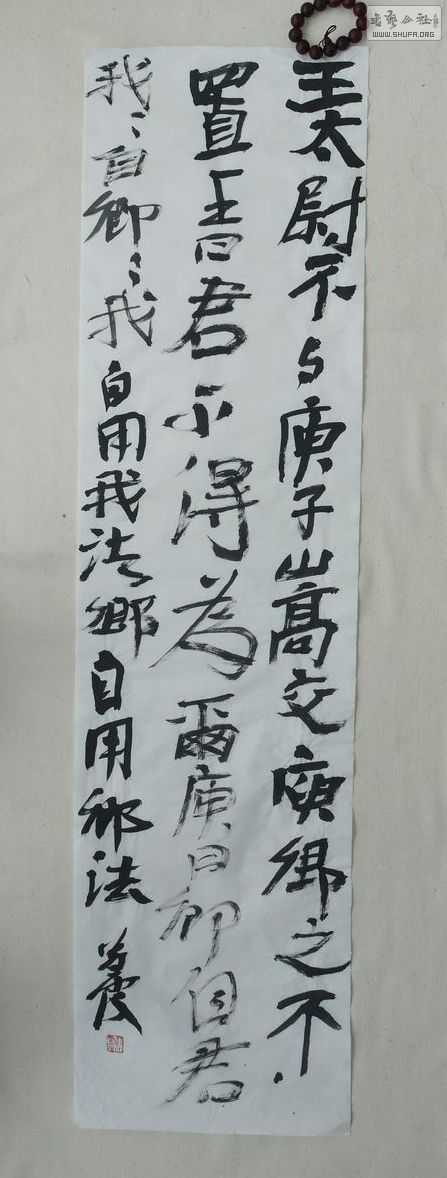 書藝公社
WWW.SHUFA.ORG
王太尉不与庾子嵩交庾卿之不
置王曰君不得為爾庾曰卿自君
我〻自卿〻我自用我法卿自用卿法